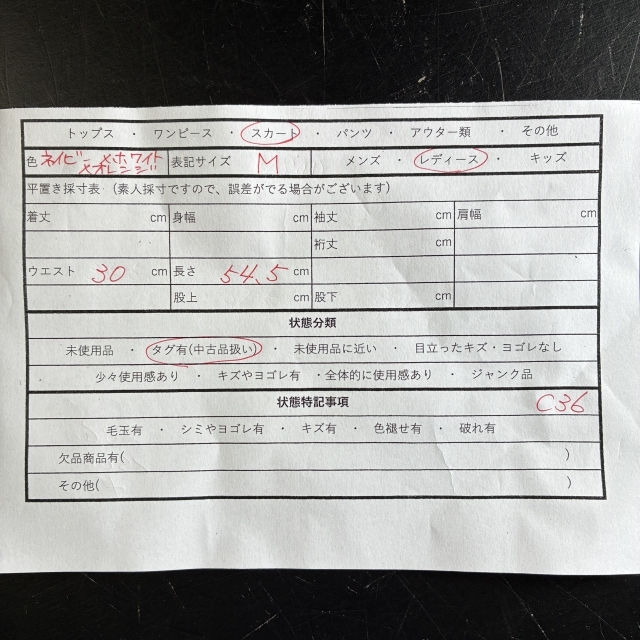 トップス ・ ワンピース ・ スカート ・ パンツ ・ アウター類 ・ その他
色 ネイビー×ホワイト×オレンジ 表記サイズ M メンズ ・ レディース ・ キッズ
平置き採寸表 (素人採寸ですので、誤差がでる場合がございます)
着丈 cm 身幅 cm 袖丈 cm 肩幅 cm
裄丈 cm
ウエスト 30 cm 長さ 54.5 cm
股上 cm 股下 cm
状態分類
未使用品 ・ タグ有(中古品扱い) ・ 未使用品に近い ・ 目立ったキズ・ヨゴレなし
少々使用感あり ・ キズやヨゴレ有 ・全体的に使用感あり ・ ジャンク品
状態特記事項 C36
毛玉有 ・ シミやヨゴレ有 ・ キズ有 ・ 色褪せ有 ・ 破れ有
欠品商品有( )
その他( )